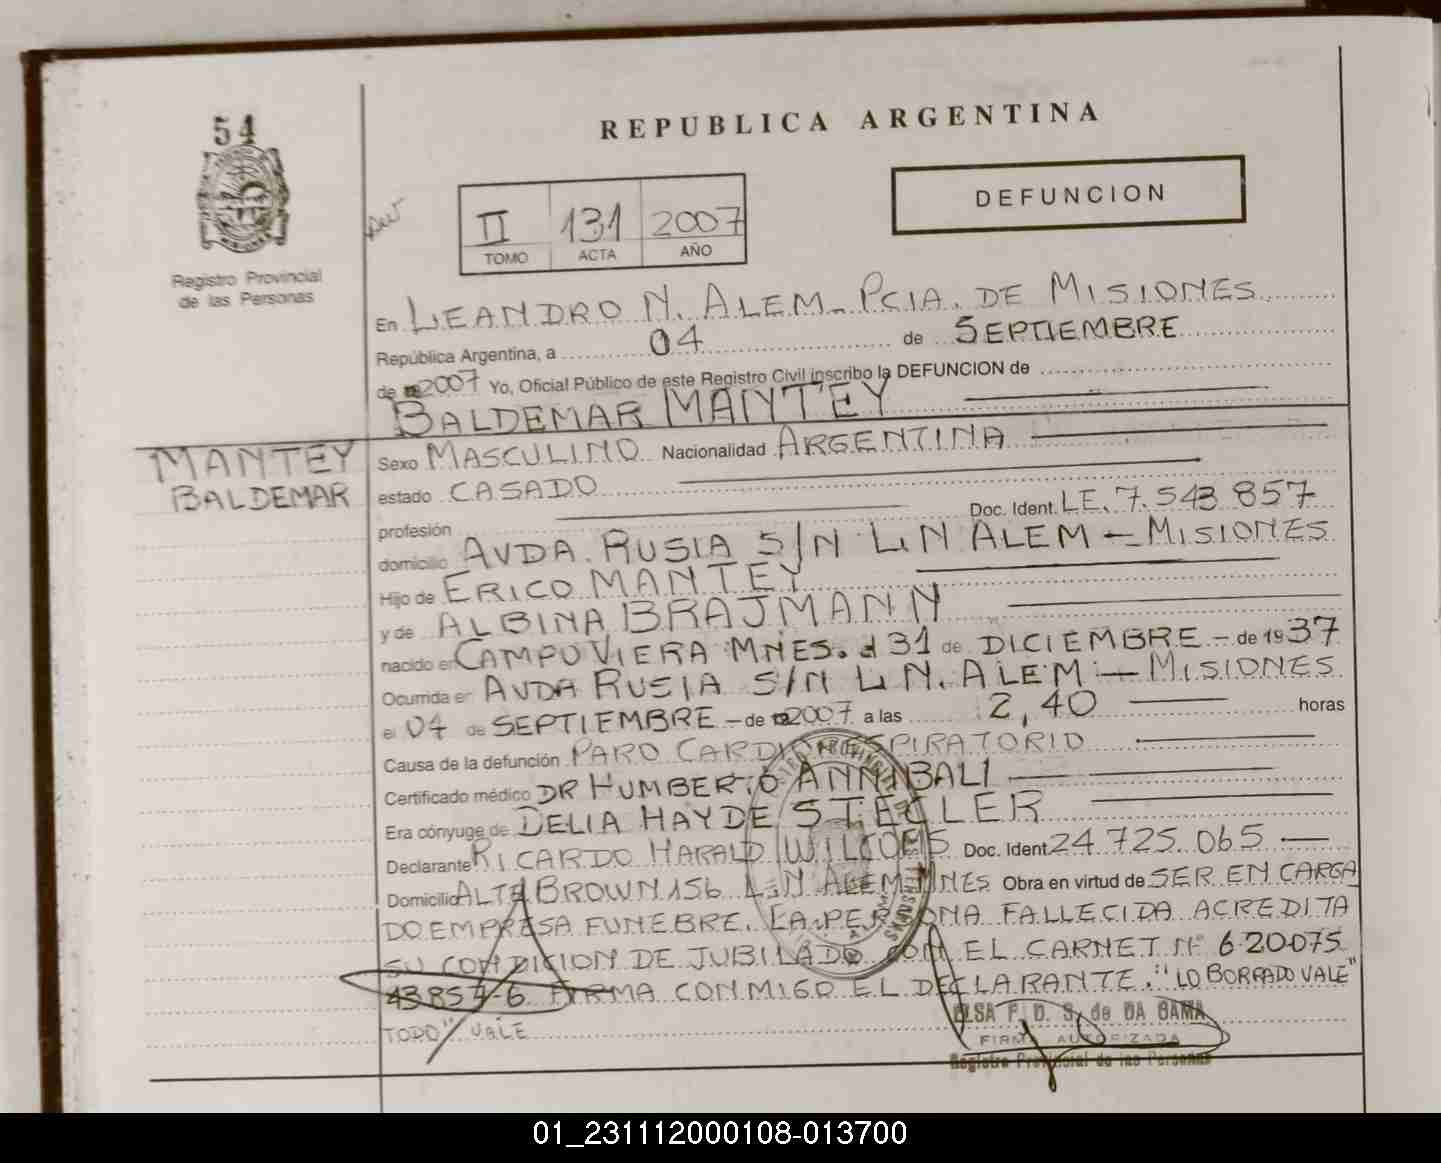 54
REPUBLICA ARGENTINA
DEFUNCION
II 131 2007
TOMO ACTA AÑO
Registro Provincial
de las Personas
En LEANDRO N. ALEM - PCIA. DE MISIONES
República Argentina, a 04 de SEPTIEMBRE
de 2007 Yo, Oficial Público de este Registro Civil inscribo la DEFUNCION de
BALDEMAR MANTEY
MANTEY
BALDEMAR
Sexo MASCULINO Nacionalidad ARGENTINA
estado CASADO
profesión Doc. Ident. LE. 7.543.857
domicilio AVDA. RUSIA S/N L.N ALEM - MISIONES
Hijo de ERICO MANTEY
y de ALBINA BRAJMANN
nacido en CAMPO VIERA MNES. el 31 de DICIEMBRE - de 1937
Ocurrida en AVDA RUSIA S/N L.N. ALEM - MISIONES
el 04 de SEPTIEMBRE - de 2007 a las 2,40 horas
Causa de la defunción PARO CARDIORESPIRATORIO
Certificado médico DR HUMBERTO ANNIBALI
Era cónyuge de DELIA HAYDE STECLER
Declarante RICARDO HARALD Doc. Ident. 24.725.065
Domicilio ALTE BROWN 156 L.N ALEM MNES Obra en virtud de SER ENCARGA
DO EMPRESA FUNEBRE. LA PERSONA FALLECIDA ACREDITA
SU CONDICION DE JUBILADO CON EL CARNET Nº 6-20075
43854-6 FIRMA CONMIGO EL DECLARANTE. "LO BORRADO VALE"
TODO" VALE
ELSA F. D. S. de DA GAMA
FIRMA AUTORIZADA
Registro Provincial de las Personas
01_231112000108-013700